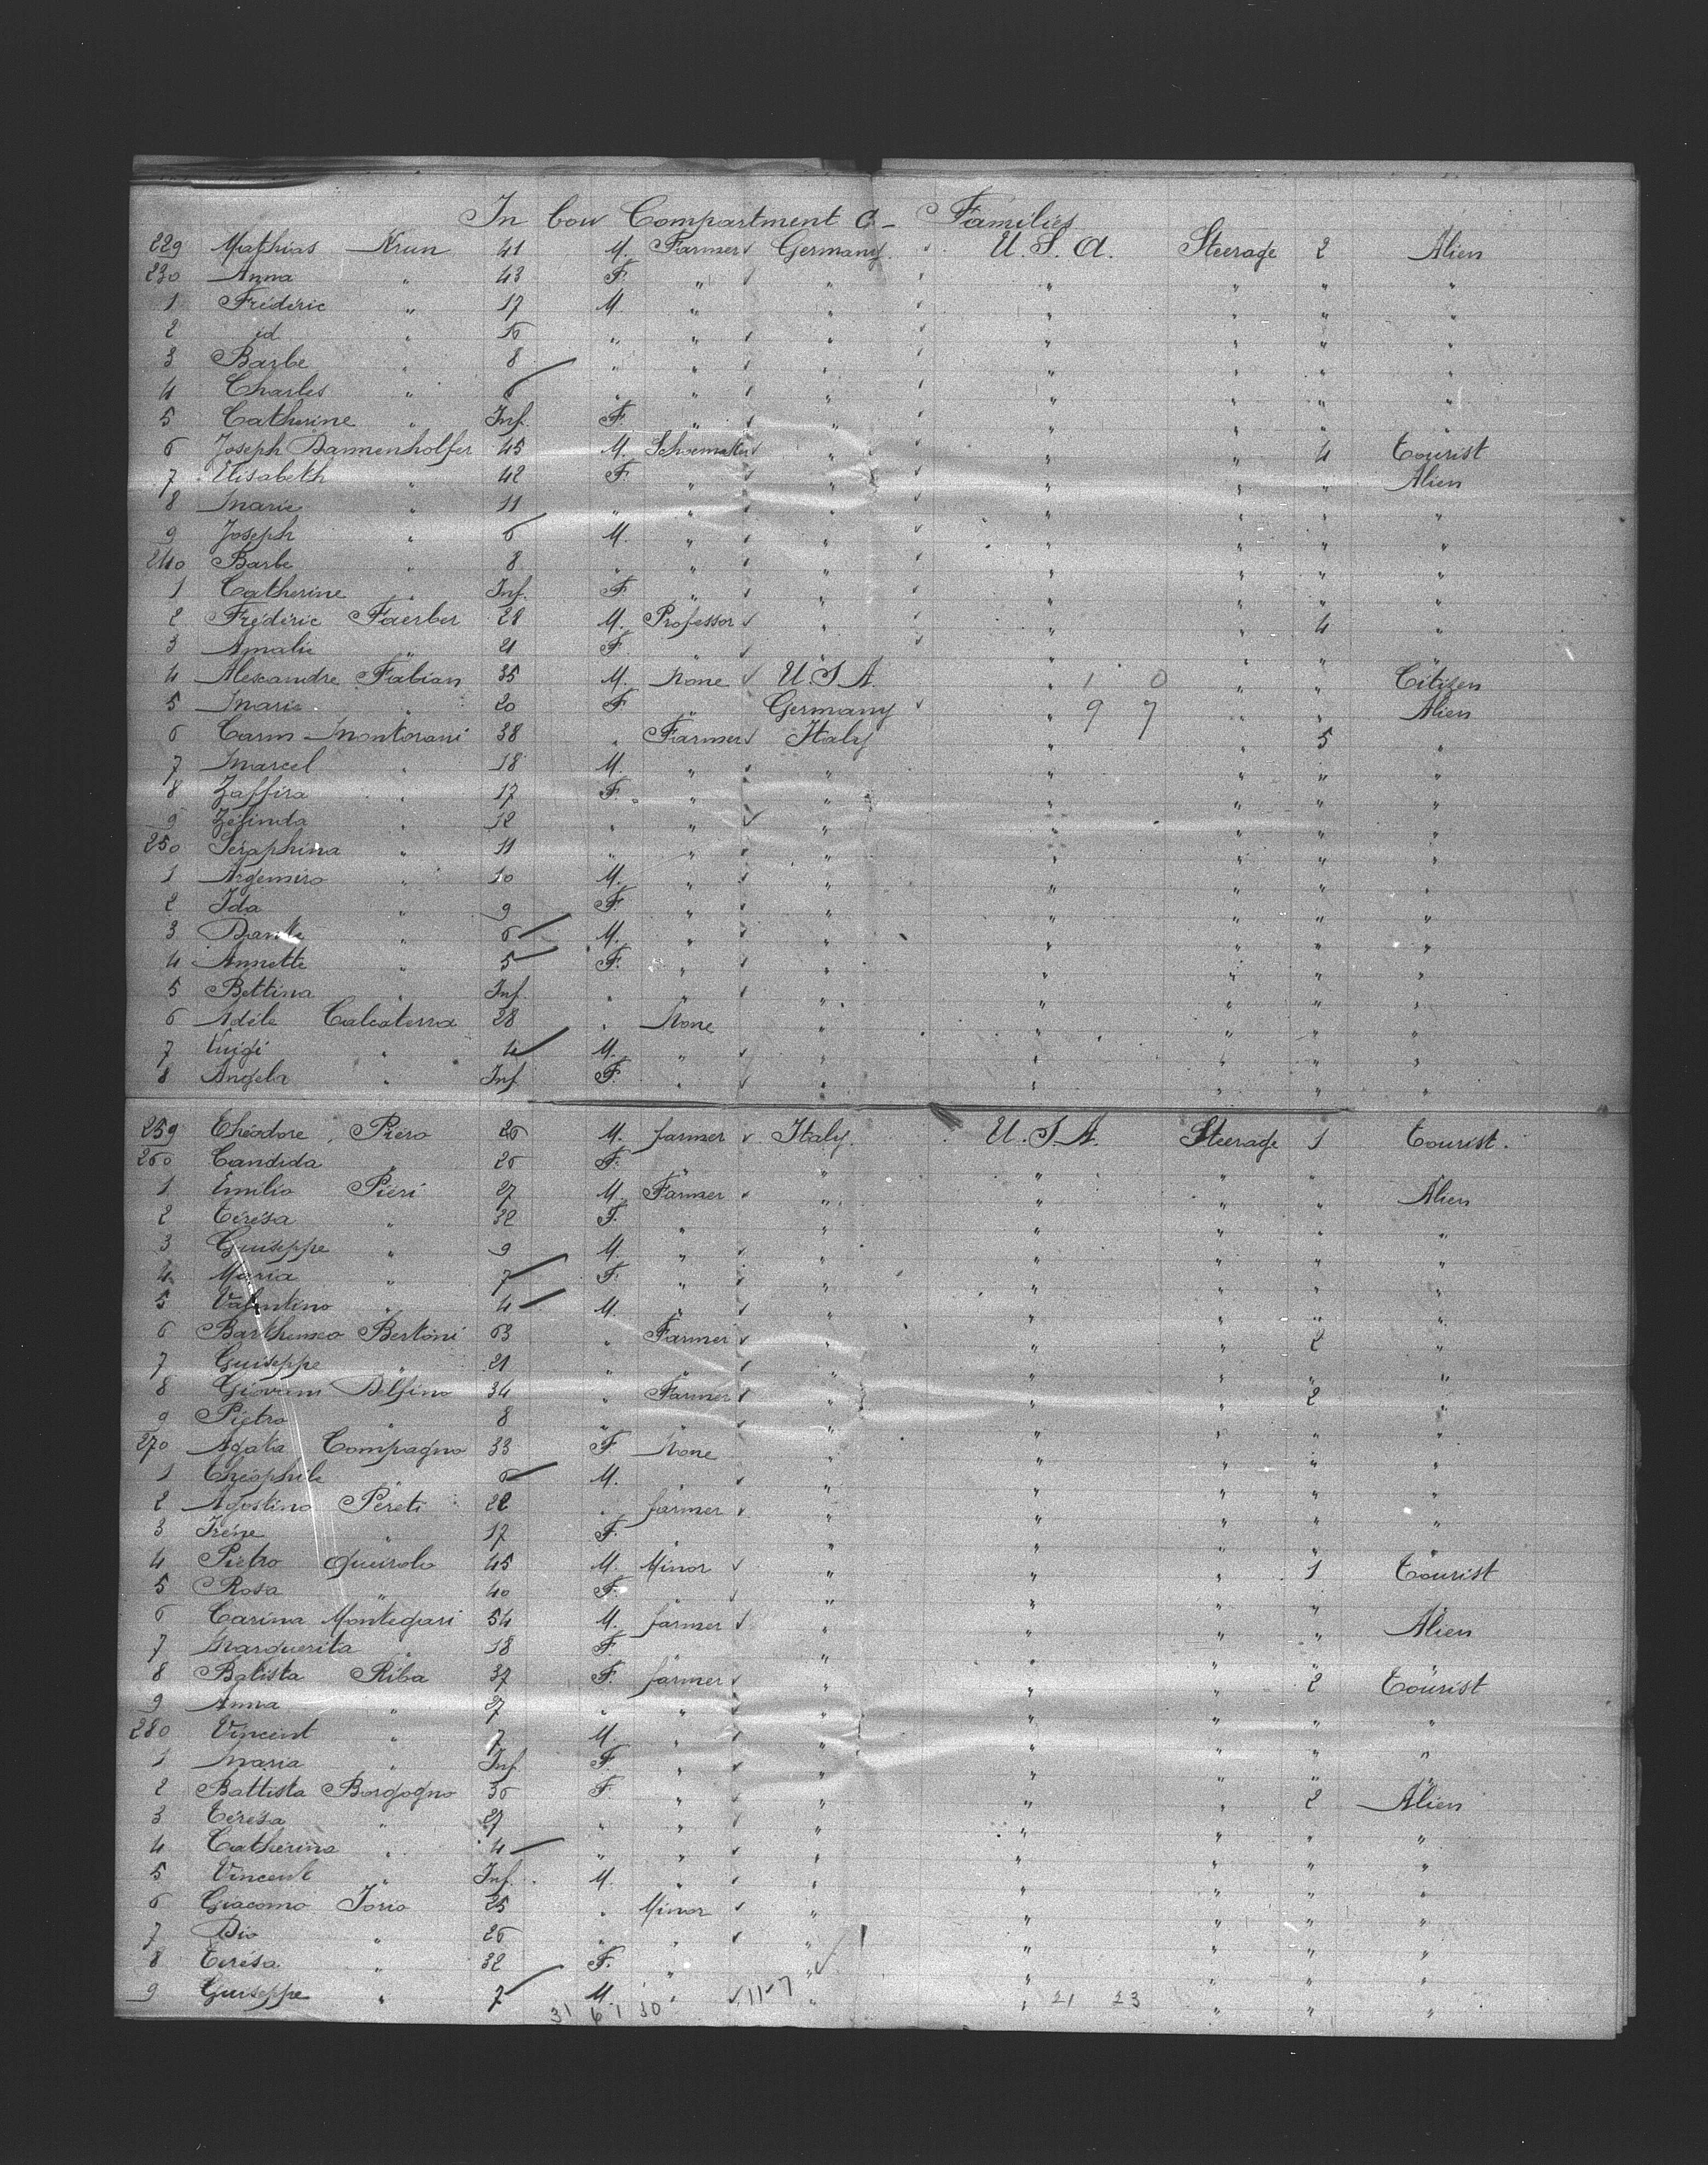 In bow Compartment C - Families
229 Mathias Krun 41 M. Farmer Germany U.S.A. Steerage 2 Alien
230 Anna " 43 F. " " " " " "
1 Frédéric " 17 M. " " " " " "
2 id " 16 " " " " " " "
3 Barbe " 8 " " " " " " "
4 Charles " 6 " " " " " " "
5 Catherine " Inf. F. " " " " " "
6 Joseph Dannenholfer 45 M. Schoemaker " " " 4 Tourist
7 Elisabeth " 42 F. " " " " " Alien
8 Marie " 11 " " " " " " "
9 Joseph " 6 M. " " " " " "
240 Barbe " 8 " " " " " " "
1 Catherine " Inf. F. " " " " " "
2 Frédéric Faerber 28 M. Professor " " " 4 "
3 Amalie " 21 F. " " " " " "
4 Alexandre Fabian 35 M. None U.S.A. " 1 0 " " Citizen
5 Marie " 20 F. " Germany " 9 7 " " Alien
6 Carm Montorani 38 " Farmer Italy " " 5 "
7 Marcel " 18 M. " " " " " "
8 Zaffira " 17 F. " " " " " "
9 Zélinda " 12 " " " " " " "
250 Seraphina " 11 " " " " " " "
1 Argemiro " 10 M. " " " " " "
2 Ida " 9 F. " " " " " "
3 Dante " 6 M. " " " " " "
4 Annette " 5 F. " " " " " "
5 Bettina " Inf. " " " " " " "
6 Adéle Calcaterra 28 " None " " " " "
7 Luigi " 4 M. " " " " " "
8 Angela " Inf. F. " " " " " "
259 Théodore Piéro 26 M. farmer Italy U.S.A. Steerage 1 Tourist.
260 Candida " 26 F. " " " " "
1 Emilio Piéri 27 M. Farmer " " " " Alien
2 Térésa " 32 F. " " " " " "
3 Guiseppe " 9 M. " " " " " "
4 Maria " 7 F. " " " " " "
5 Valentino " 4 M. " " " " " "
6 Barthemeo Bertoni 63 " Farmer " " " 2 "
7 Guiseppe " 21 " " " " " " "
8 Giovani Delfino 34 " Farmer " " " 2 "
9 Pietro " 8 " " " " " " "
270 Agata Compagno 33 F None " " " " "
1 Théophile " 6 M. " " " " "
2 Agostino Péreti 22 " farmer " " " " "
3 Irène " 17 F. " " " " "
4 Pietro Queirolo 45 M. Minor " " " 1 Tourist
5 Rosa " 40 F. " " " "
6 Carina Montegari 54 M. farmer " " " " Alien
7 Marguerita " 18 F. " " " " "
8 Batista Riba 37 F. farmer " " " 2 Tourist
9 Anna " 27 " " " " " " "
280 Vincent " 7 M. " " " " " "
1 Maria " Inf. F. " " " " " "
2 Battista Borgogno 36 F " " " " 2 Alien
3 Térésa " 27 " " " " " " "
4 Cathérina " 4 " " " " " " "
5 Vincent " Inf. M. " " " " " "
6 Giacomo Iorio 25 " Minor " " " " "
7 Dio " 26 " " " " " " "
8 Térésa " 32 F. " " " " " "
9 Guiseppe " 7 M. " 11-7 " " 21 23 " " "
31 6 1 30